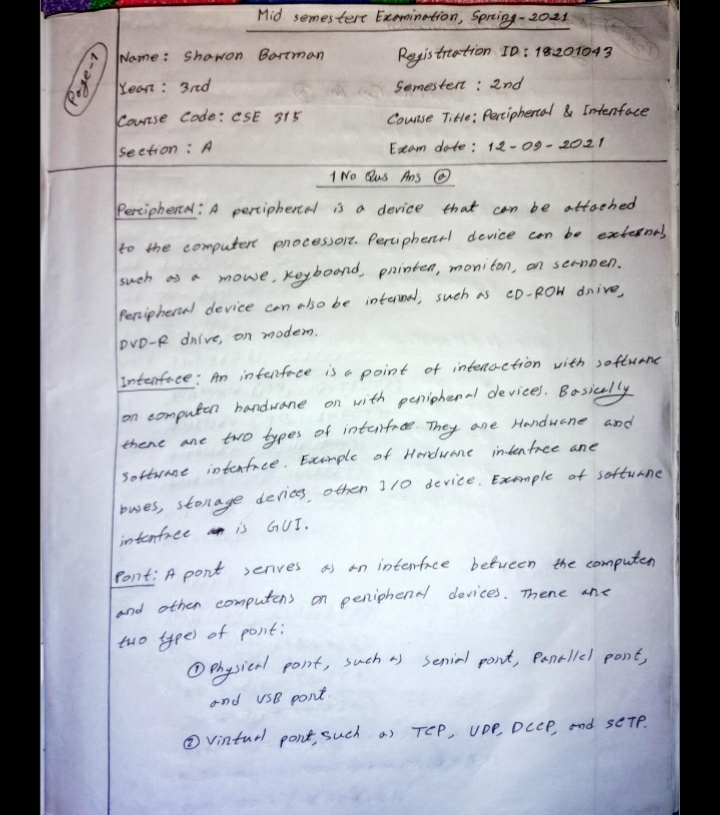 Mid semester Examination, Spring-2021
Page-1
Name: Shawon Barman
Registration ID: 18201043
Year: 3rd
Semester: 2nd
Course Code: CSE 315
Course Title: Peripheral & Interface
Section: A
Exam date: 12-09-2021
1 No Qus Ans (a)
Peripheral: A peripheral is a device that can be attached
to the computer processor. Peripheral device can be external,
such as a mouse, keyboard, printer, monitor, or scanner.
Peripheral device can also be internal, such as CD-ROM drive,
DVD-R drive, or modem.
Interface: An interface is a point of interaction with software
or computer hardware or with peripheral devices. Basically
there are two types of interface. They are Hardware and
Software interface. Example of Hardware interface are
buses, storage devices, other I/O device. Example of software
interface is GUI.
Port: A port serves as an interface between the computer
and other computers or peripheral devices. There are
two types of port:
① Physical port, such as Serial port, Parallel port,
and USB port.
② Virtual port, such as TCP, UDP, DCCP, and SCTP.